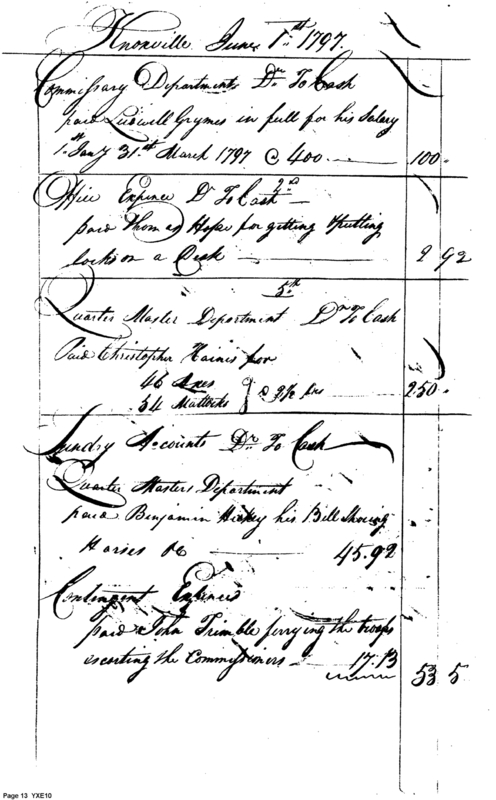 Knoxville June 1.st 1797.
Commissary Department Dr. To Cash
paid Ludwell Grymes in full for his Salary
1.st Jany 31.st March 1797 @ 400 100
2.d
Office Expence Dr To Cash
paid Thomas Hope for getting & putting
locks on a Desk 2 92
5.th
Quarter Master Department Dr. To Cash
Paid Christopher Haines for
46 Axes
54 Mattocks } @ 2½ Drs 250
Sundry Accounts Dr. To Cash
Quarter Masters Department
paid Benjamin his Bill Shoeing
Horses &c 45.92
Contingent Expences
paid John Trimble ferrying the troops
escorting the Commissioners 17.13
53 5
Page 13 YXE10